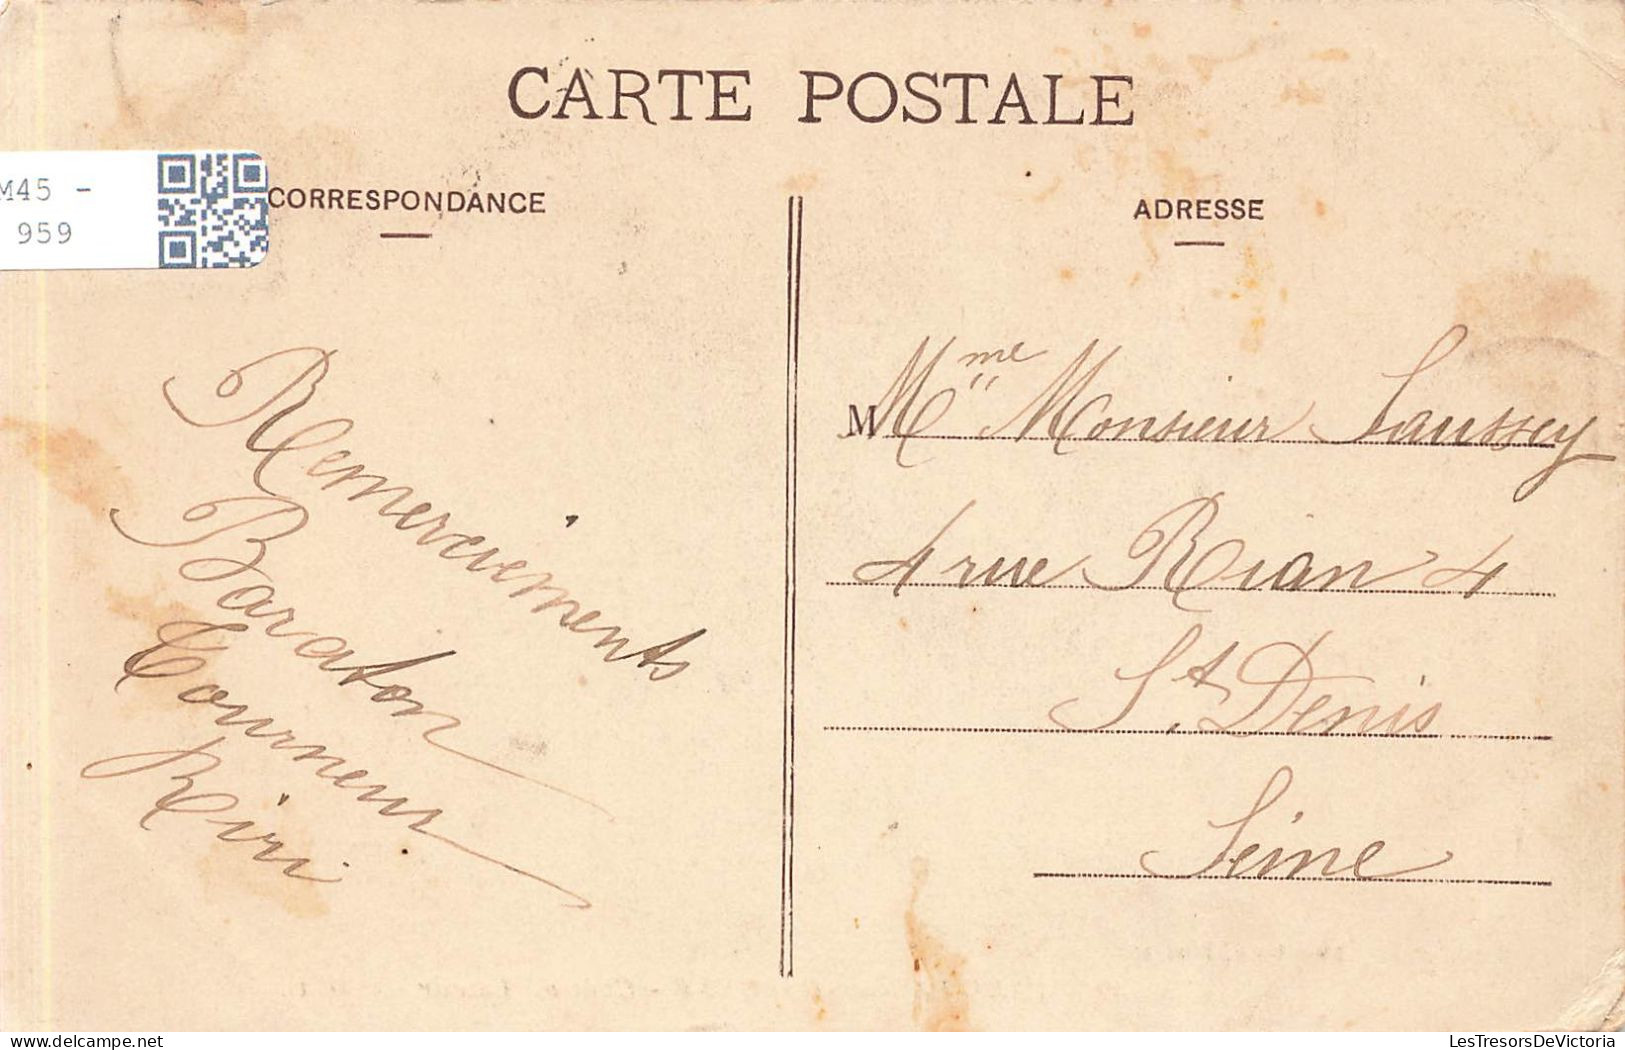 CARTE POSTALE
M45 -
959
CORRESPONDANCE
ADRESSE
Remerciements
Baraton
Tourneur
Riri
M Mme Monsieur Saussey
4 rue Rian 4
St. Denis
Seine
LesTresorsDeVictoria
delcampe.net